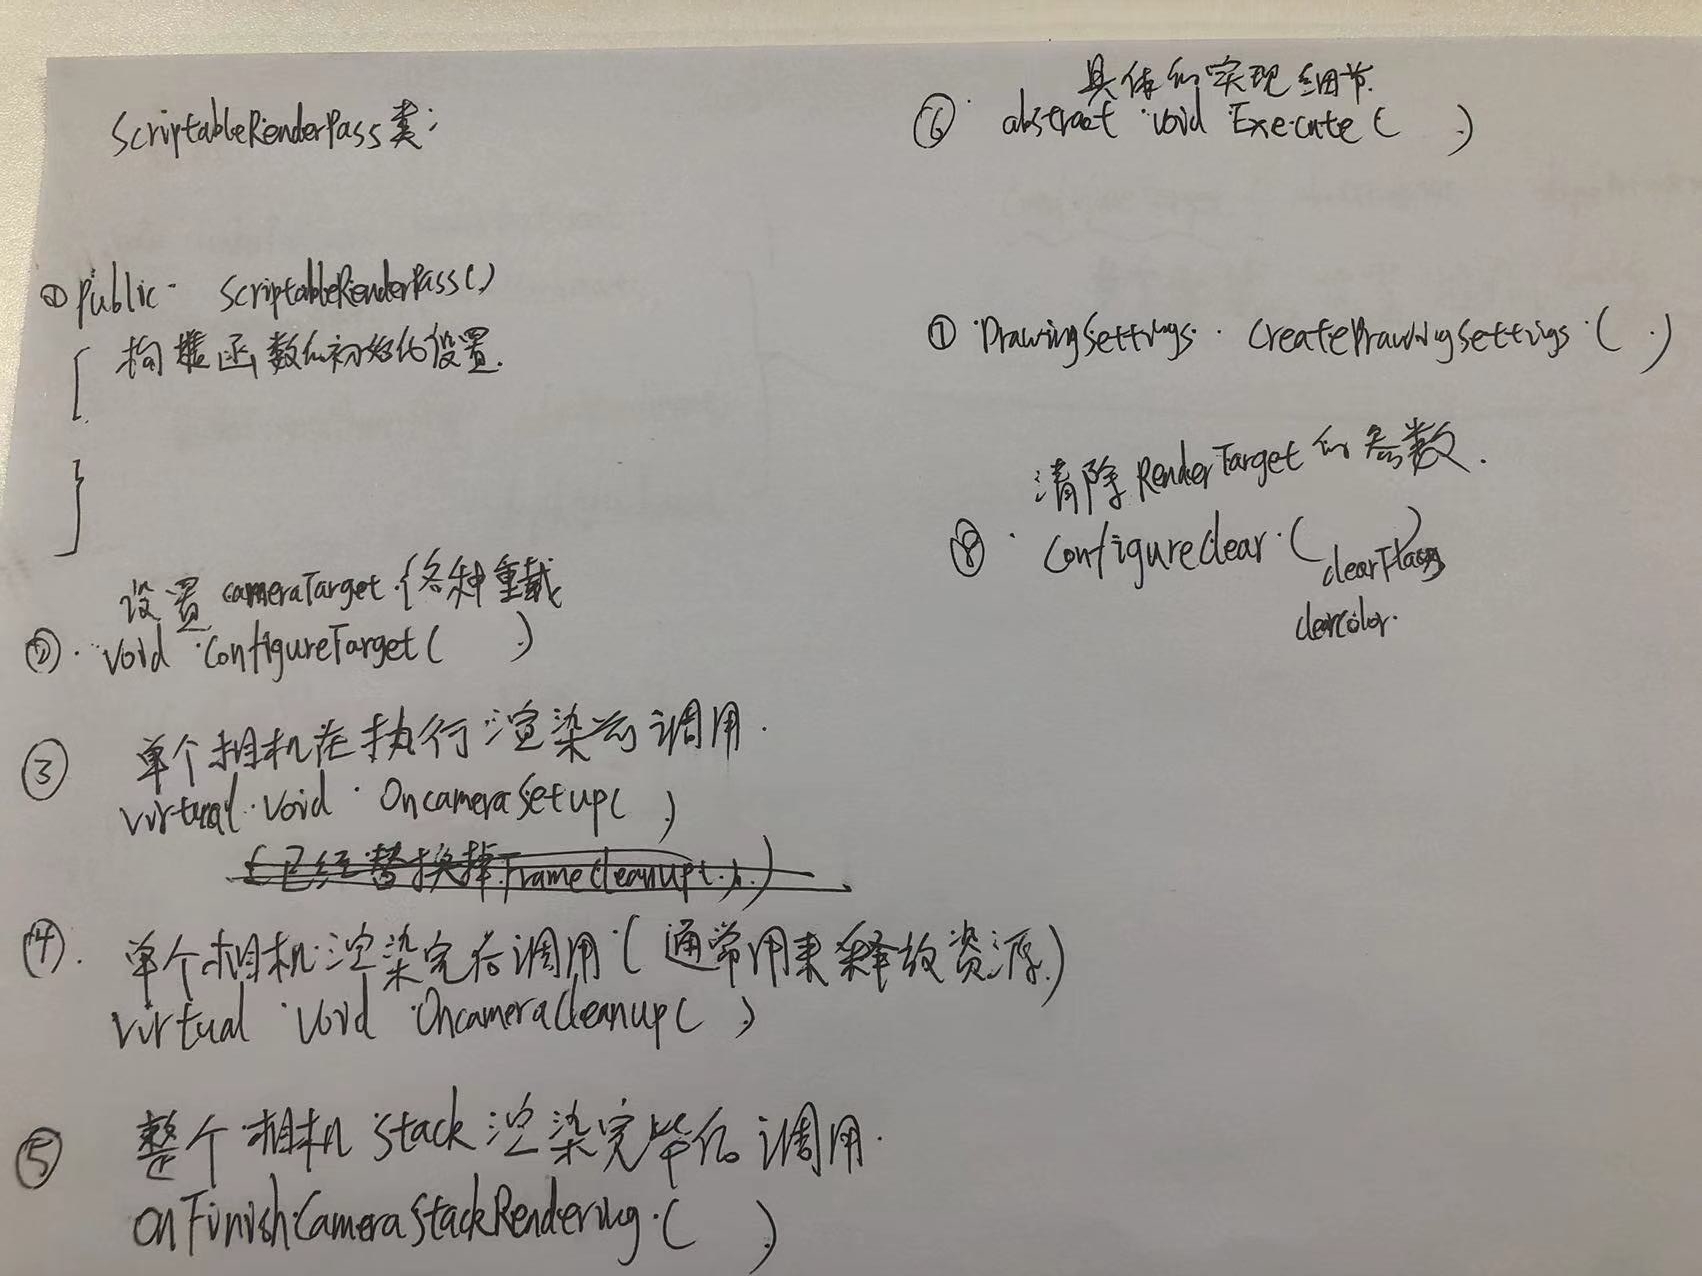 ScriptableRenderPass类:
① public ScriptableRenderPass()
[ 构造函数的初始化设置.
]
设置 cameraTarget (各种重载
②. void ConfigureTarget( )
③ 单个相机在执行渲染前调用.
virtual void OnCameraSetup( )
(已经替换掉FrameCleanup( ).)
④. 单个相机渲染完后调用(通常用来释放资源.)
virtual void OnCameraCleanup( )
⑤ 整个相机 Stack 渲染完毕后调用.
OnFinishCameraStackRendering.( )
具体的实现细节.
⑥ abstract void Execute( )
⑦ DrawingSettings CreateDrawingSettings( )
清除RenderTarget的参数.
⑧ ConfigureClear( clearFlag )
clearcolor.